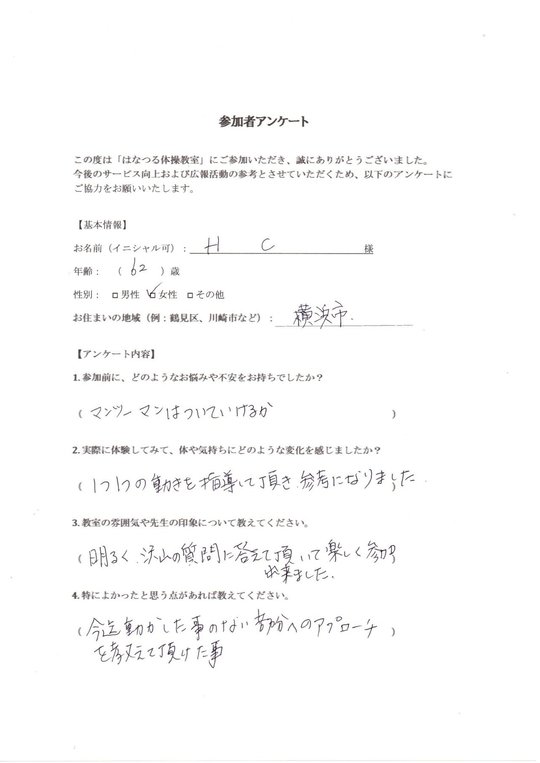 参加者アンケート
この度は「はなつる体操教室」にご参加いただき、誠にありがとうございました。
今後のサービス向上および広報活動の参考とさせていただくため、以下のアンケートに
ご協力をお願いいたします。
【基本情報】
お名前（イニシャル可）： H C 様
年齢： （ 62 ）歳
性別： □男性 ☑女性 □その他
お住まいの地域（例：鶴見区、川崎市など）： 横浜市.
【アンケート内容】
1. 参加前に、どのようなお悩みや不安をお持ちでしたか？
（ マンツーマンはついていけるか ）
2. 実際に体験してみて、体や気持ちにどのような変化を感じましたか？
（ 1つ1つの動きを指導して頂き 参考になりました
3. 教室の雰囲気や先生の印象について教えてください。
（ 明るく 沢山の質問に答えて頂いて楽しく参加
出来ました.
4. 特によかったと思う点があれば教えてください。
（ 今迄動かした事のない部分へのアプローチ ）
を教えて頂けた事